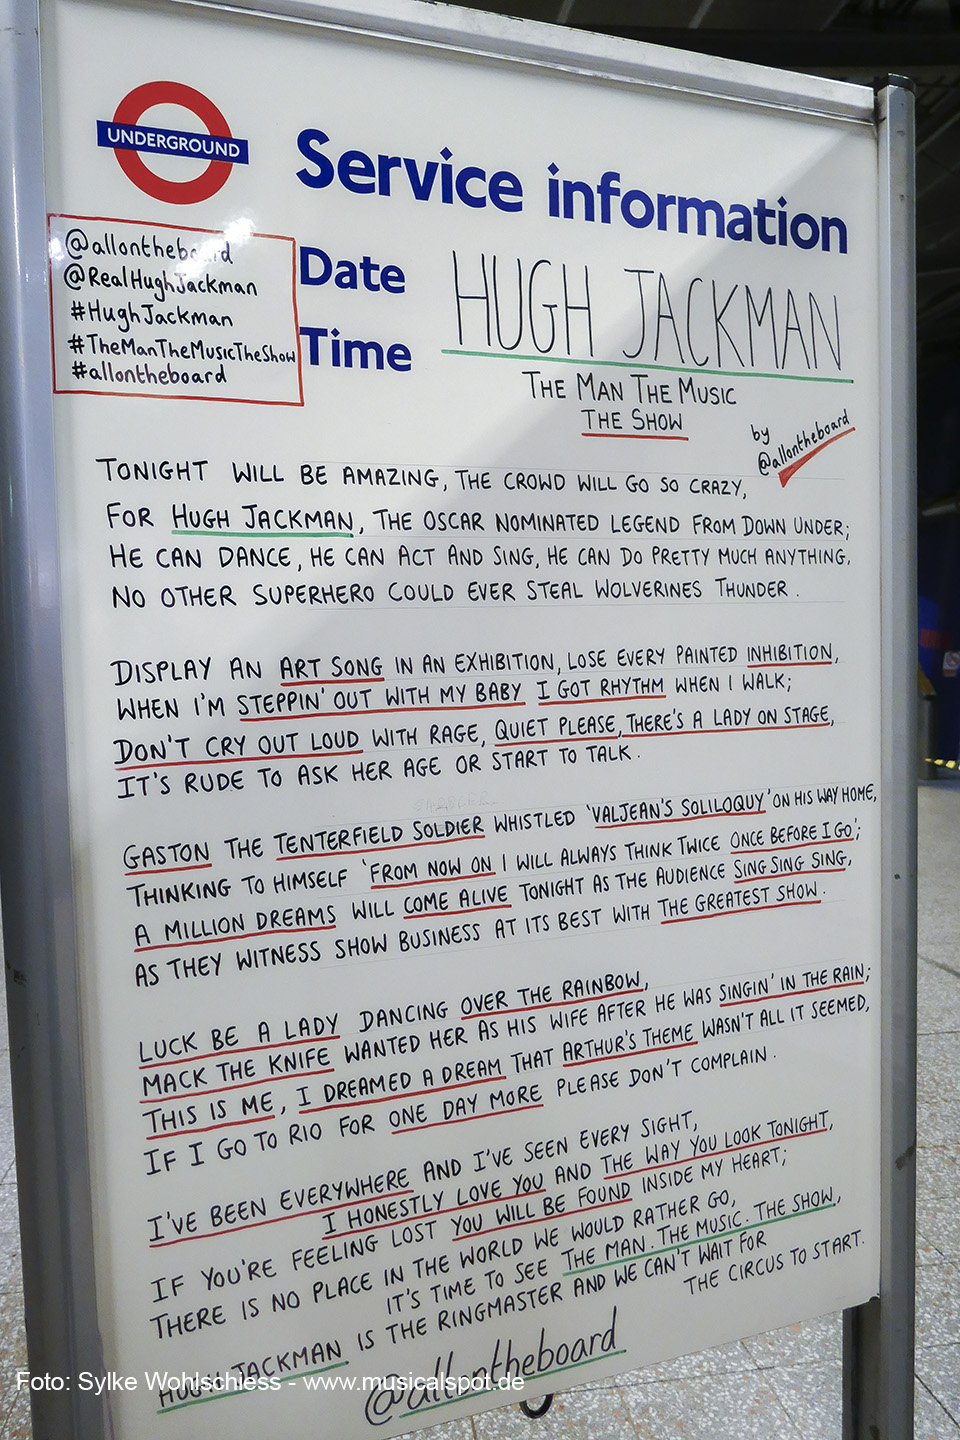 UNDERGROUND
Service information
@allontheboard
@RealHughJackman
#HughJackman
#TheManTheMusicTheShow
#allontheboard
Date
Time
HUGH JACKMAN
THE MAN THE MUSIC
THE SHOW
by
@allontheboard
TONIGHT WILL BE AMAZING, THE CROWD WILL GO SO CRAZY,
FOR HUGH JACKMAN, THE OSCAR NOMINATED LEGEND FROM DOWN UNDER;
HE CAN DANCE, HE CAN ACT AND SING, HE CAN DO PRETTY MUCH ANYTHING.
NO OTHER SUPERHERO COULD EVER STEAL WOLVERINES THUNDER.
DISPLAY AN ART SONG IN AN EXHIBITION, LOSE EVERY PAINTED INHIBITION,
WHEN I'M STEPPIN' OUT WITH MY BABY I GOT RHYTHM WHEN I WALK;
DON'T CRY OUT LOUD WITH RAGE, QUIET PLEASE, THERE'S A LADY ON STAGE,
IT'S RUDE TO ASK HER AGE OR START TO TALK.
GASTON THE TENTERFIELD SOLDIER WHISTLED 'VALJEAN'S SOLILOQUY' ON HIS WAY HOME,
THINKING TO HIMSELF 'FROM NOW ON I WILL ALWAYS THINK TWICE ONCE BEFORE I GO';
A MILLION DREAMS WILL COME ALIVE TONIGHT AS THE AUDIENCE SING SING SING,
AS THEY WITNESS SHOW BUSINESS AT ITS BEST WITH THE GREATEST SHOW.
LUCK BE A LADY DANCING OVER THE RAINBOW,
MACK THE KNIFE WANTED HER AS HIS WIFE AFTER HE WAS SINGIN' IN THE RAIN;
THIS IS ME, I DREAMED A DREAM THAT ARTHUR'S THEME WASN'T ALL IT SEEMED,
IF I GO TO RIO FOR ONE DAY MORE PLEASE DON'T COMPLAIN.
I'VE BEEN EVERYWHERE AND I'VE SEEN EVERY SIGHT,
I HONESTLY LOVE YOU AND THE WAY YOU LOOK TONIGHT,
IF YOU'RE FEELING LOST YOU WILL BE FOUND INSIDE MY HEART;
THERE IS NO PLACE IN THE WORLD WE WOULD RATHER GO,
IT'S TIME TO SEE THE MAN. THE MUSIC. THE SHOW,
HUGH JACKMAN IS THE RINGMASTER AND WE CAN'T WAIT FOR
THE CIRCUS TO START.
@allontheboard
Foto: Sylke Wohlschiess - www.musicalspot.de